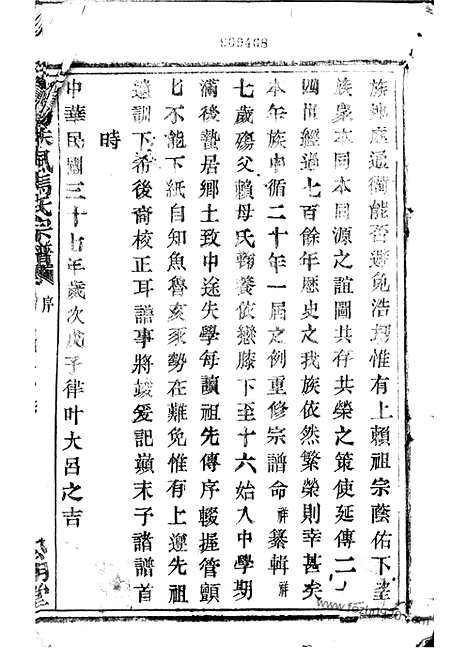 909468
族姓應通衢能否避免浩劫惟有上賴祖宗蔭佑下望
族衆本同本同源之誼圖共存共榮之策使延傳二
四世經過七百餘年歷史之我族依然繁榮則幸甚矣
本年族中循二十年一屆之例重修宗譜命祥纂輯祥
七歲殤父賴母氏鞠養依戀膝下至十六始入中學期
滿後蟄居鄉土致中途失學每讀祖先傳序輟握管顫
七不能下紙自知魚魯亥豕勢在難免惟有上遵先祖
遺訓下希後裔校正耳譜事將竣爰記巔末子諸譜首
時
中華民國三十七年歲次戊子律叶大呂之吉
馬氏宗譜
序